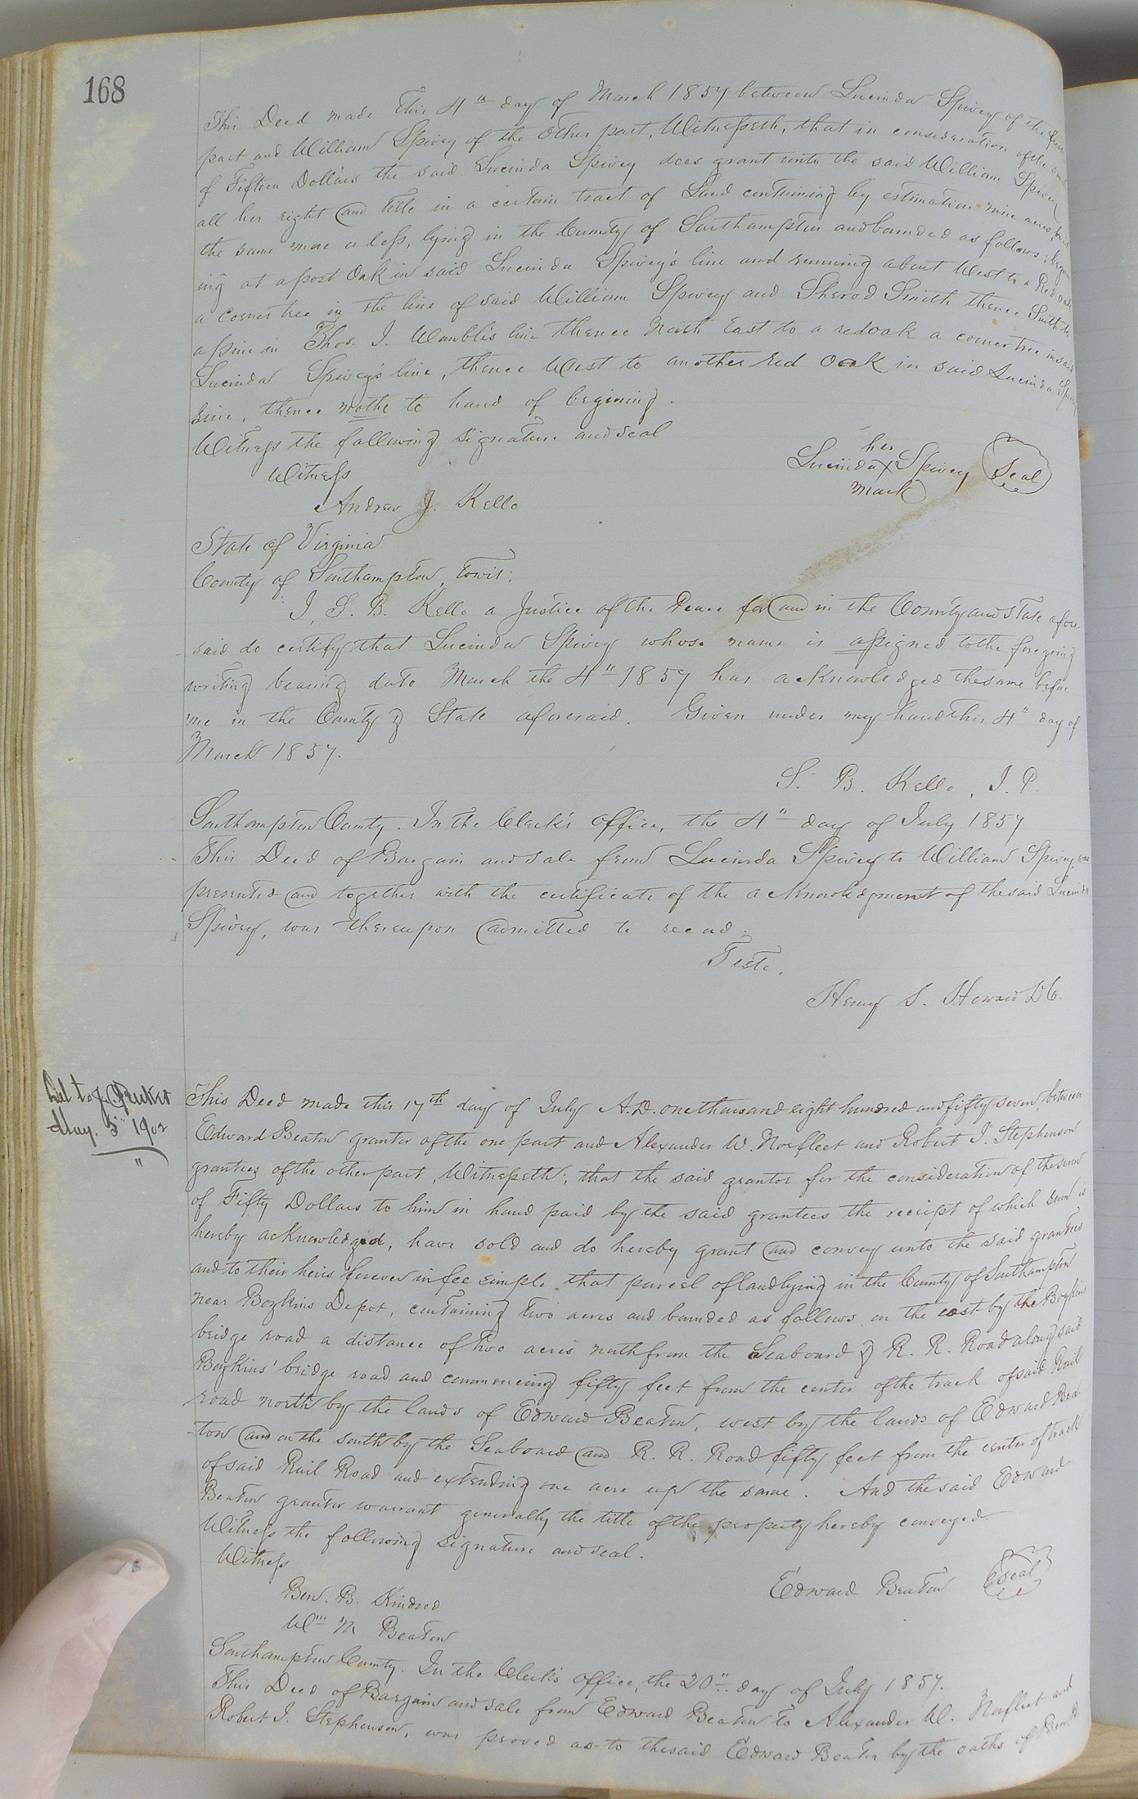 168
This Deed made this 4th day of March 1857 between Lucinda Spivey of the one
part and William Spivey of the other part, Witnesseth, that in consideration of the sum
of Fifteen Dollars the said Lucinda Spivey does grant unto the said William Spivey
all her right and title in a certain tract of Land containing by estimation nine acres, be
the same more or less, lying in the County of Southampton and bounded as follows; begin
ing at a post Oak in said Lucinda Spivey's line and running about West to a Red oak
a corner tree in the line of said William Spivey and Sherod Smith thence South to
a pine in Thos. J. Womble's line thence North East to a red oak a corner tree in said
Lucinda Spivey's line, thence West to another red oak in said Lucinda Spivey
line, thence nothe to hand of begining.
Witness the following signature and seal
Witness
Andrew J. Kello
her
Lucinda X Spivey Seal
mark
State of Virginia
County of Southampton, towit:
I, S. B. Kello a Justice of the Peace for and in the County and State afore
said do certify that Lucinda Spivey whose name is assigned to the foregoing
writing bearing date March the 4" 1857 has acknowledged the same before
me in the County & State aforesaid. Given under my hand this 4" day of
March 1857.
S. B. Kello, J. P.
Southampton County. In the Clerk's office, the 4" day of July 1857
This Deed of Bargain and sale from Lucinda Spivey to William Spivey, was
presented and together with the certificate of the acknowledgment of the said Lucinda
Spivey, was thereupon admitted to record.
Teste,
Henry S. Howard D C.
Del to
May. 5" 1902
This Deed made this 17th day of July A.D. one thousand eight hundred and fifty seven, between
Edward Beaton grantor of the one part and Alexander W. Norfleet and Robert J. Stephenson
grantees of the other part, Witnesseth; that the said grantor for the consideration of the sum
of Fifty Dollars to him in hand paid by the said grantees the receipt of which sum is
hereby acknowledged, have sold and do hereby grant and convey unto the said grantees
and to their heirs forever in fee simple that parcel of land lying in the County of Southampton
near Boykins Depot, containing two acres and bounded as follows, on the east by the Boykins
bridge road a distance of two acres north from the Seaboard & R. R. Road along said
Boykins' bridge road and commencing fifty feet from the center of the track of said Rail
road north by the lands of Edward Beaton, west by the lands of Edward Bea-
ton and on the south by the Seaboard and R. R. Road fifty feet from the center of track
of said Rail Road and extending one acre up the same. And the said Edward
Beaton grantor warrant generally the title of the property hereby conveyed
Witness the following signature and seal.
Witness
Edward Beaton Seal
Ben. B. Kindred
Wm M Beaton
Southampton County. In the Clerk's office, the 20" day of July 1857.
This Deed of Bargain and sale from Edward Beaton to Alexander W. Norfleet and
Robert J. Stephenson, was proved as to the said Edward Beaton by the oaths of